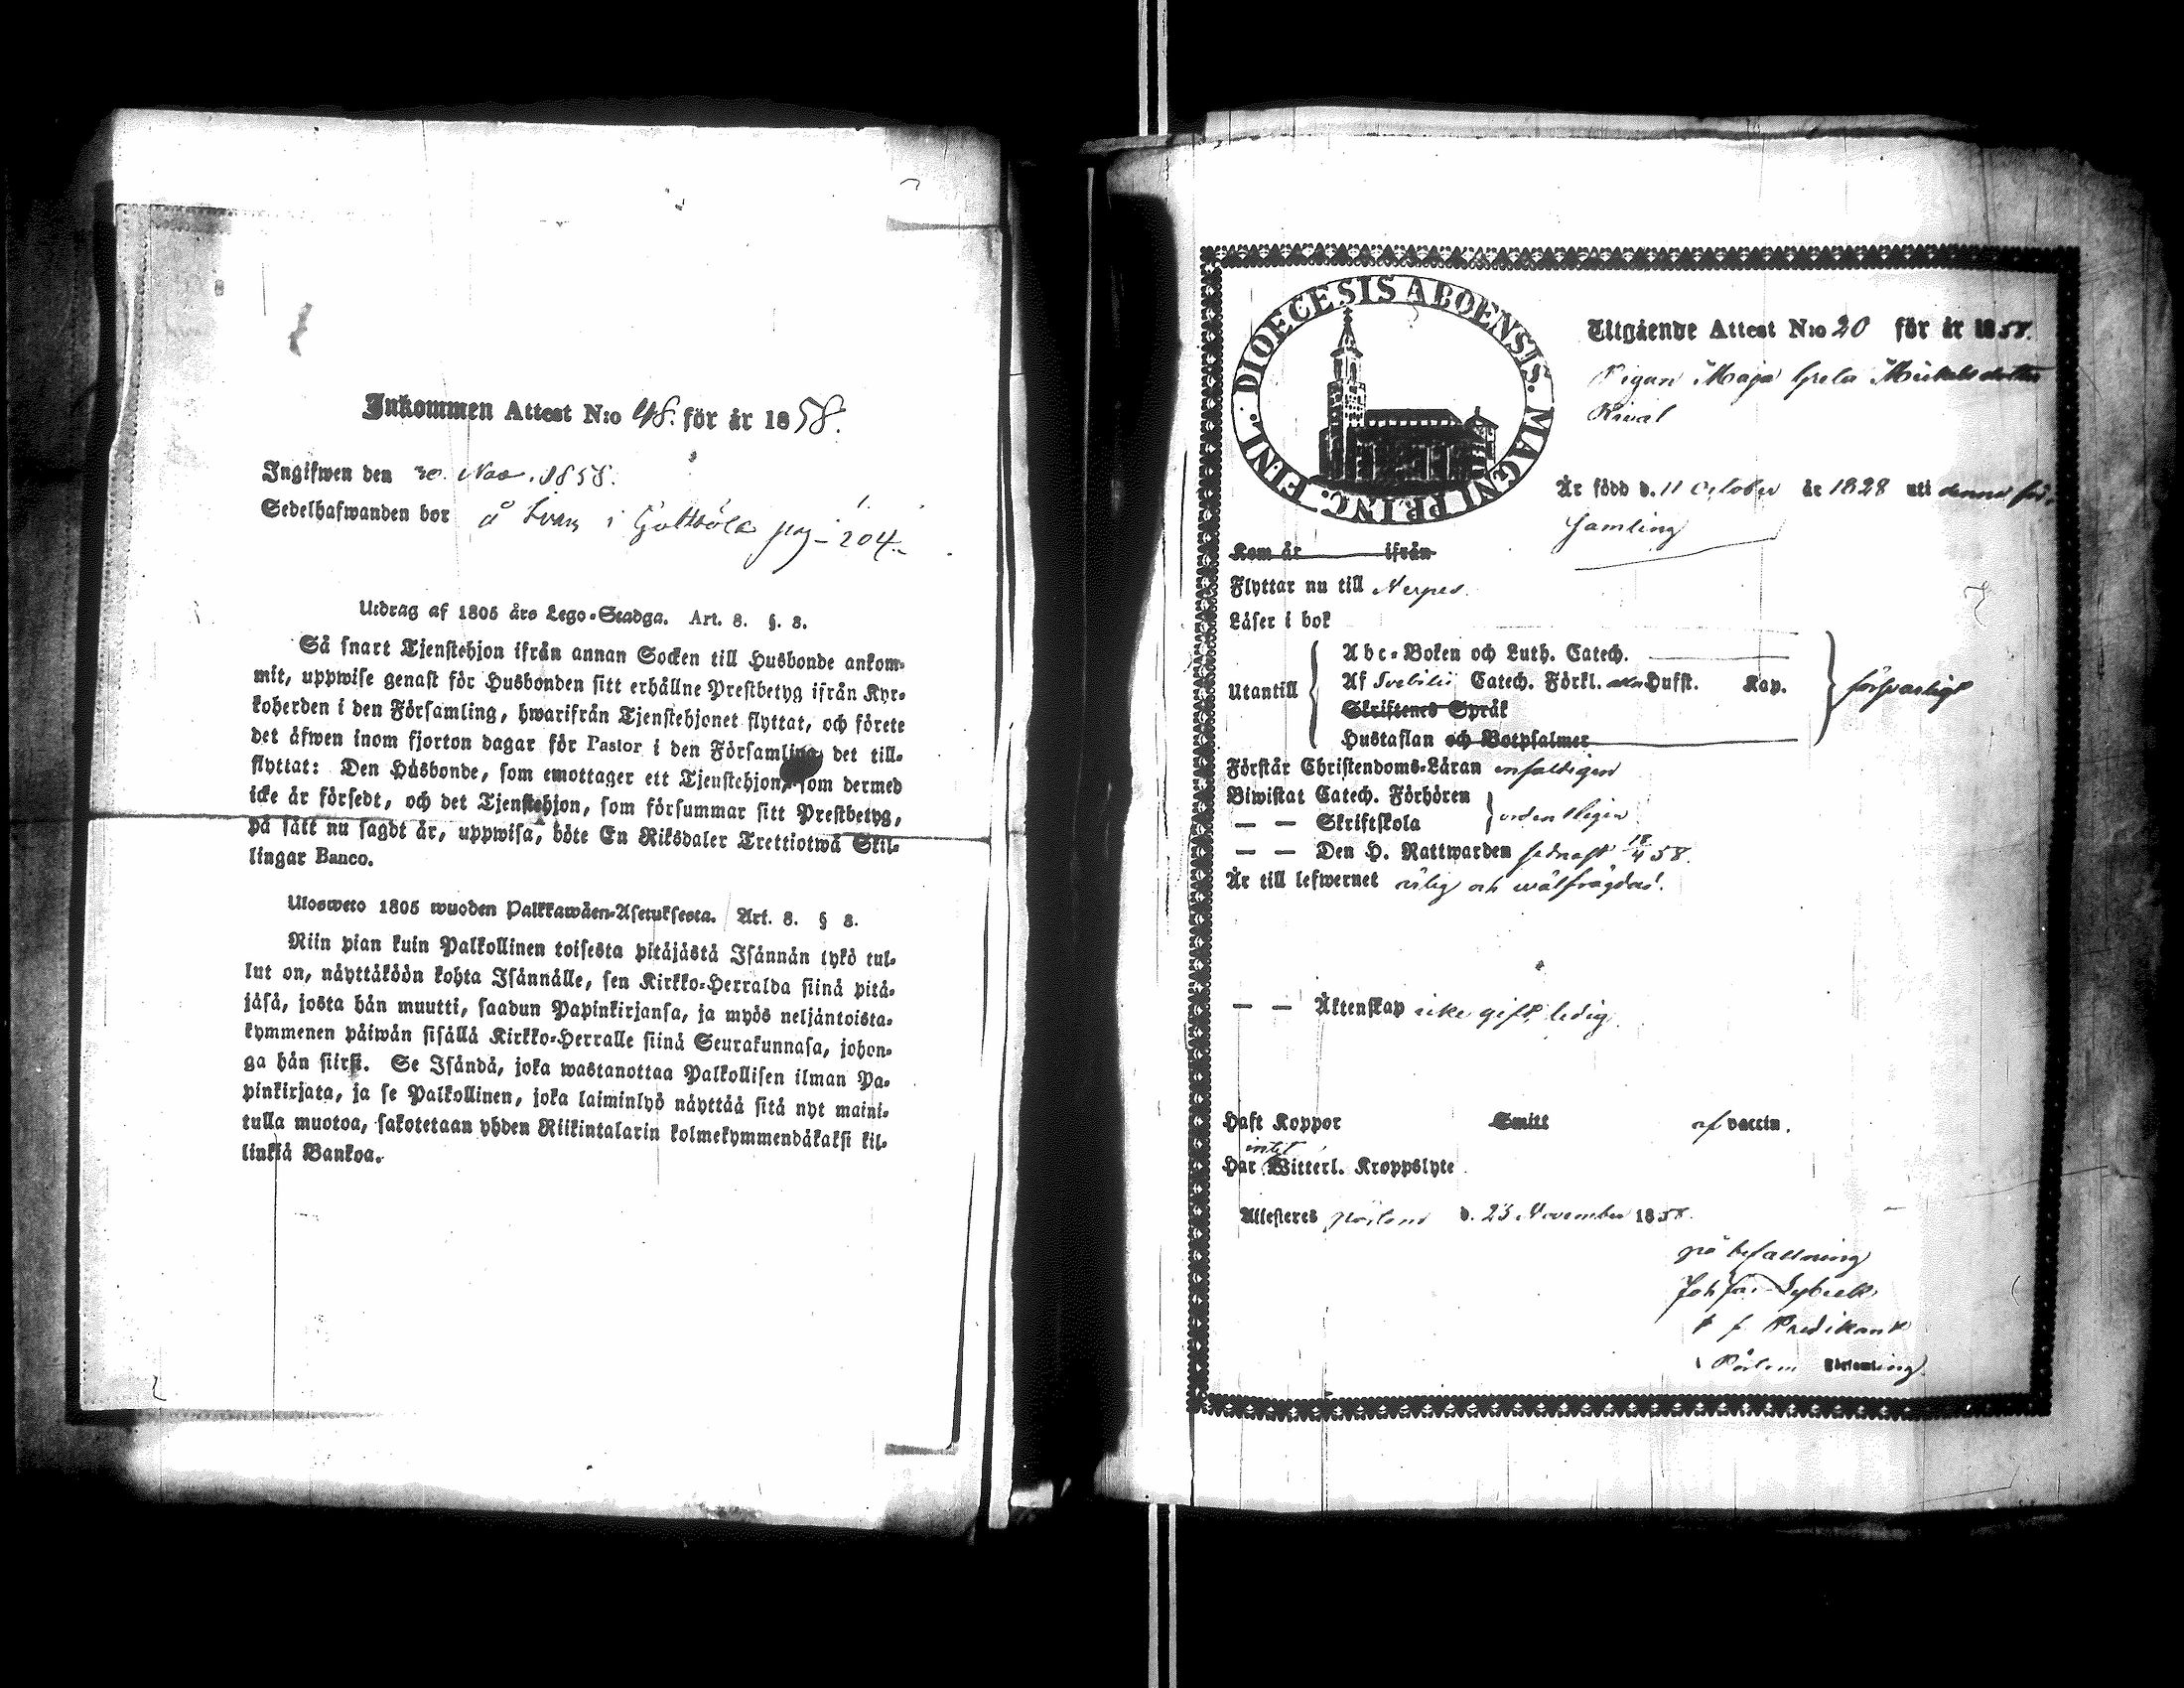 Inkommen Attest N:o 48. för år 1858.
Ingifwen den 30. Nov. 1858.
Sedelhafwanden bor å Svars i Gottböle pag. 204.
Utdrag af 1805 års Lego-Stadga. Art. 8. §. 8.
Så snart Tjenstehjon ifrån annan Socken till Husbonde ankom-
mit, uppwise genast för Husbonden sitt erhållne Prestbetyg ifrån Kyr-
koherden i den Församling, hwarifrån Tjenstehjonet flyttat, och förete
det äfwen inom fjorton dagar för Pastor i den Församling det till-
flyttat: Den Husbonde, som emottager ett Tjenstehjon, som dermed
icke är försedt, och det Tjenstehjon, som försummar sitt Prestbetyg,
på sätt nu sagdt är, uppwisa, böte En Riksdaler Trettiotwå Skil-
lingar Banco.
Ulosweto 1805 wuoden Palkkawäen-Asetuksesta. Art. 8. § 8.
Niin pian kuin Palkollinen toisesta pitäjästä Isännän tykö tul-
lut on, näyttäköön kohta Isännälle, sen Kirkko-Herralda siinä pitä-
jäsä, josta hän muutti, saadun Papinkirjansa, ja myös neljäntoista-
kymmenen päiwän sisällä Kirkko-Herralle siinä Seurakunnasa, johon-
ga hän siirsi. Se Isändä, joka wastanottaa Palkollisen ilman Pa-
pinkirjata, ja se Palkollinen, joka laiminlyö näyttää sitä nyt maini-
tulla muotoa, sakotetaan yhden Riikintalarin kolmekymmendäkaksi kil-
linkiä Bankoa.
DIOECESIS ABOENSIS. MAGNI PRINC. FINL.
Utgående Attest N:o 20 för år 1858.
Pigan Maja Greta Mickelsdotter
Är född d. 11 October år 1828 uti denna för-
samling
Kom år ifrån
Flyttar nu till Nerpes.
Läser i bok
Abc-Boken och Luth. Catech.
Utantill Af Svebilii Catech. Förkl. Husst. Kap. försvarligt
Skriftenes Språk
Hustaflan och Botpsalmer
Förstår Christendoms-Läran enfaldigen
Biwistat Catech. Förhören
— — Skriftskola ordentligen
— — Den H. Nattwarden sednast 18/4 58.
Är till lefwernet ärlig och wälfrägdad.
— — Äktenskap icke gift, ledig.
Haft Koppor Smitt af vaccin.
intet
Har Witterl. Kroppslyte
Attesteres Pörtom d. 23 November 1858.
på befallning
Predikant
i Pörtom Församling.